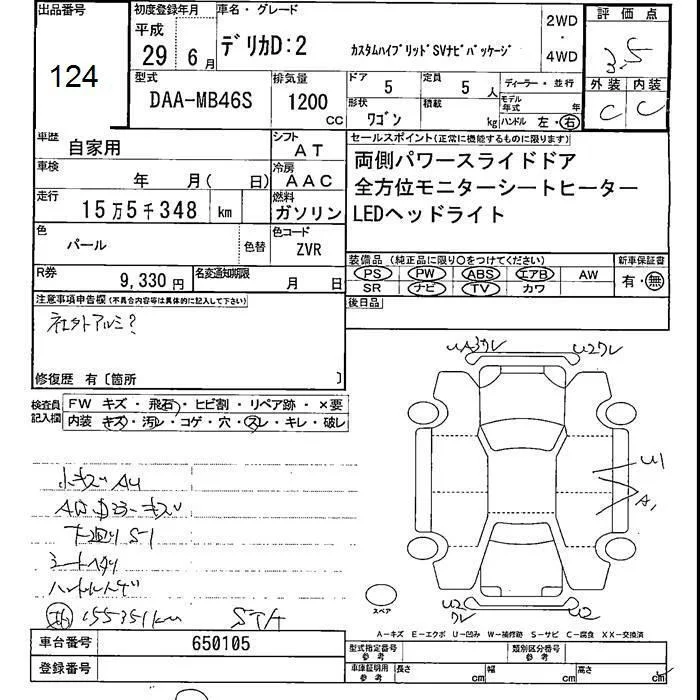 出品番号
124
初度登録年月
平成
29年 6月
車名・グレード
デリカD:2 カスタムハイブリッドSVナビパッケージ
2WD
・
4WD
評価点
3.5
外装 内装
C C
型式
DAA-MB46S
排気量
1200
CC
ドア
5
定員
5人
形状
ワゴン
積載
kg
ディーラー・並行
モデル年式 年
ハンドル 左・右
車歴
自家用
シフト
AT
車検
年 月( 日)
冷房
AAC
走行
15万5千348 km
燃料
ガソリン
色
パール
色替
色コード
ZVR
R券
9,330円
名変通知期限
月 日
セールスポイント(正常に機能するものに限ります)
両側パワースライドドア
全方位モニターシートヒーター
LEDヘッドライト
装備品(純正品に限り○をつけてください)
PS PW ABS エアB AW
SR ナビ TV カワ
新車保証書
有・無
後日品
注意事項申告欄(不具合内容等は具体的に記入して下さい)
社外アルミ?
修復歴 有〔箇所 〕
検査員記入欄
FW キズ・飛石・ヒビ割・リペア跡・×要
内装 キズ・汚レ・コゲ・穴・スレ・キレ・破レ
小キズ AU
下回り S1
155351km
UA3ワレ
U2ワレ
U1
A1
U2
ワレ
U2
スペア
A-キズ E-エクボ U-凹み W-補修跡 S-サビ C-腐食 XX-交換済
車台番号
650105
登録番号
型式指定番号
参考
類別区分番号
参考
車庫証明用
参考
長さ cm
幅 cm
高さ cm